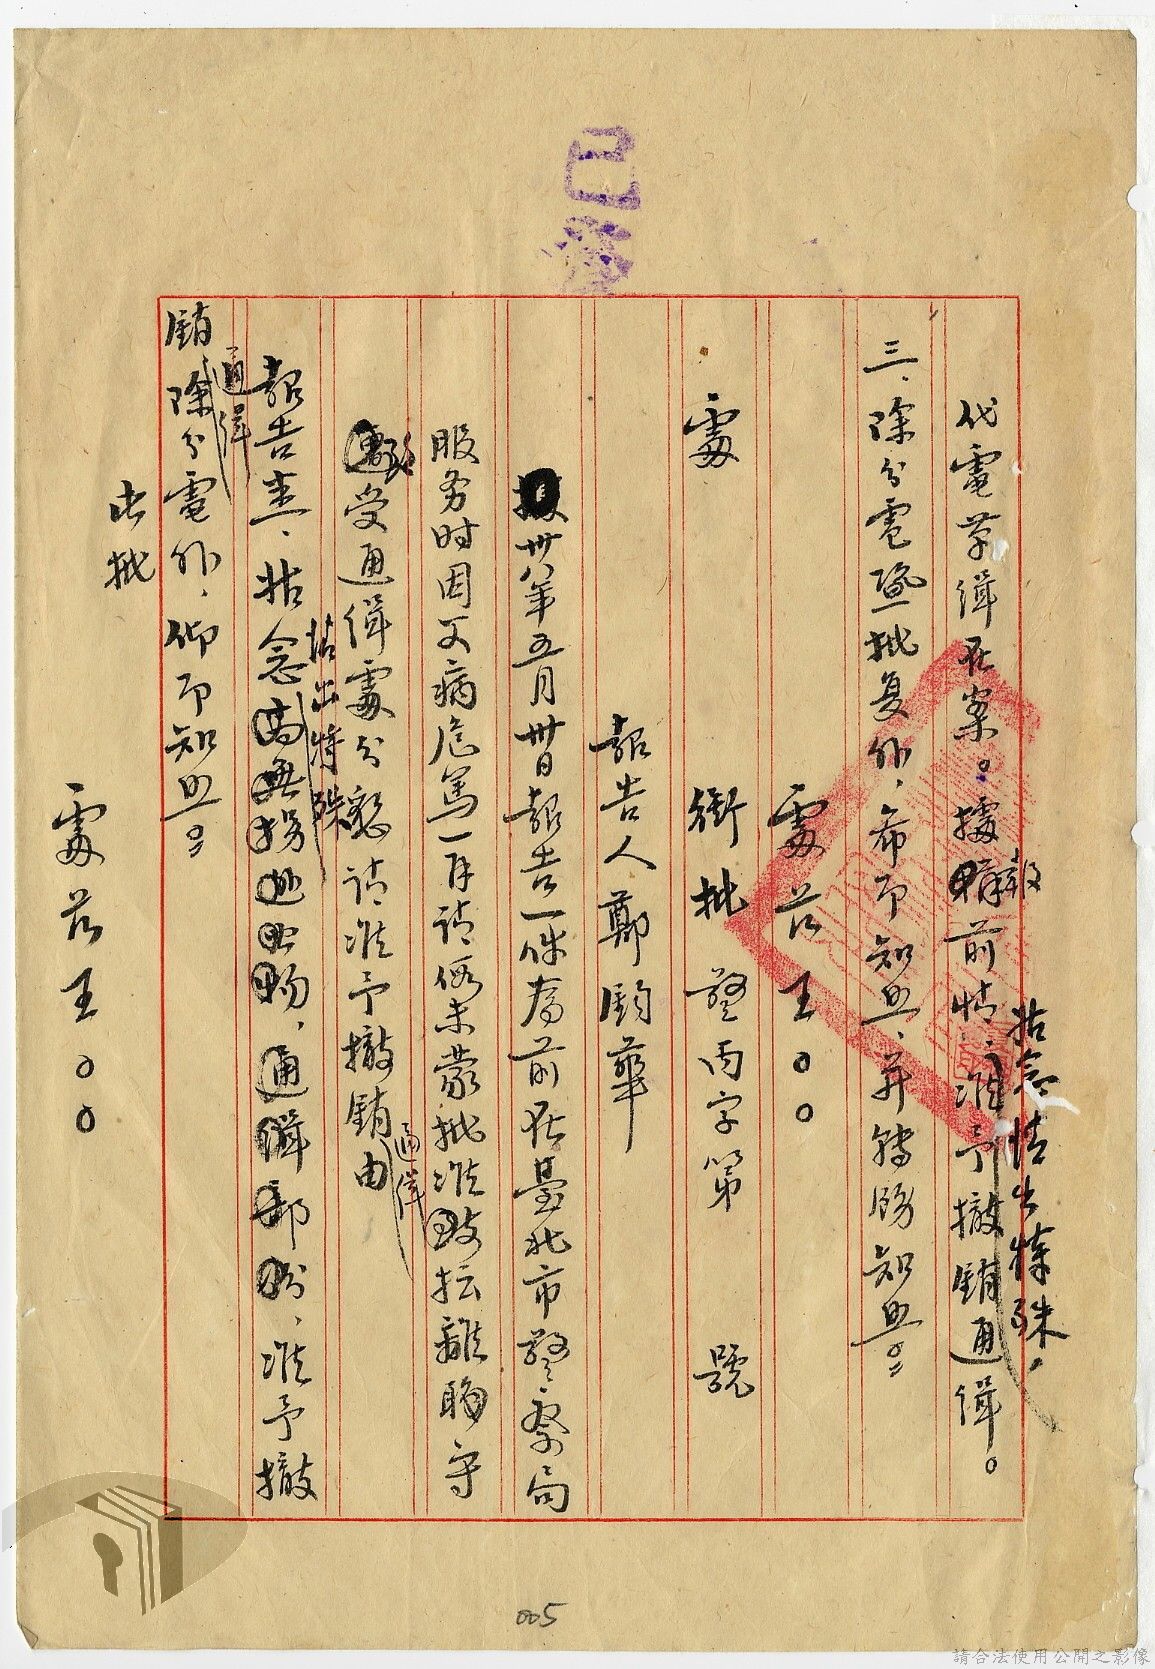 代電草緝在案。據報前情,姑念情出特殊,准予撤銷通緝。
三、除分電暨批复外,希即知照,并轉飭知照。
處長王○○
處銜批 警丙字第 號
報告人鄭鈞華
卅八年五月卅日報告一件為前在臺北市警察局
服务时因父病危篤一再請假未蒙批准致擅離職守
受通緝處分懇請准予撤銷通緝由
報告悉,姑念出特殊,准予撤
銷通緝除分電外,仰即知照。
此批
處長王○○
005
請合法使用公開之影像